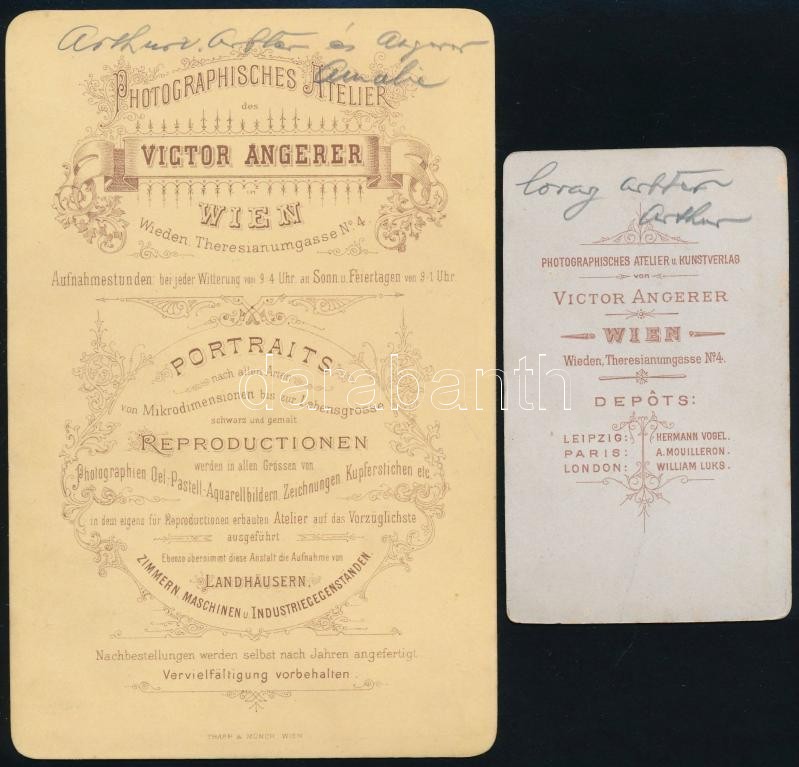 Arthur v. Arbter és Angerer
Amalie
PHOTOGRAPHISCHES ATELIER
des
VICTOR ANGERER
WIEN
Wieden, Theresianumgasse No 4.
Aufnahmestunden: bei jeder Witterung von 9-4 Uhr. an Sonn u. Feiertagen von 9-1 Uhr.
PORTRAITS
nach allen Arten
von Mikrodimensionen bis zur Lebensgrösse
schwarz und gemalt
REPRODUCTIONEN
werden in allen Grössen von
Photographien Oel-Pastell-Aquarellbildern, Zeichnungen, Kupferstichen etc.
in dem eigens für Reproductionen erbauten Atelier auf das Vorzüglichste
ausgeführt
Ebenso übernimmt diese Anstalt die Aufnahme von
LANDHÄUSERN,
ZIMMERN, MASCHINEN u. INDUSTRIEGEGENSTÄNDEN.
Nachbestellungen werden selbst nach Jahren angefertigt.
Vervielfältigung vorbehalten.
TRAPP & MÜNCH, WIEN
lovag Arbter
Arthur
PHOTOGRAPHISCHES ATELIER u. KUNSTVERLAG
von
VICTOR ANGERER
WIEN
Wieden, Theresianumgasse No 4.
DEPÔTS:
LEIPZIG: HERMANN VOGEL.
PARIS: A. MOUILLERON.
LONDON: WILLIAM LUKS.
databanth